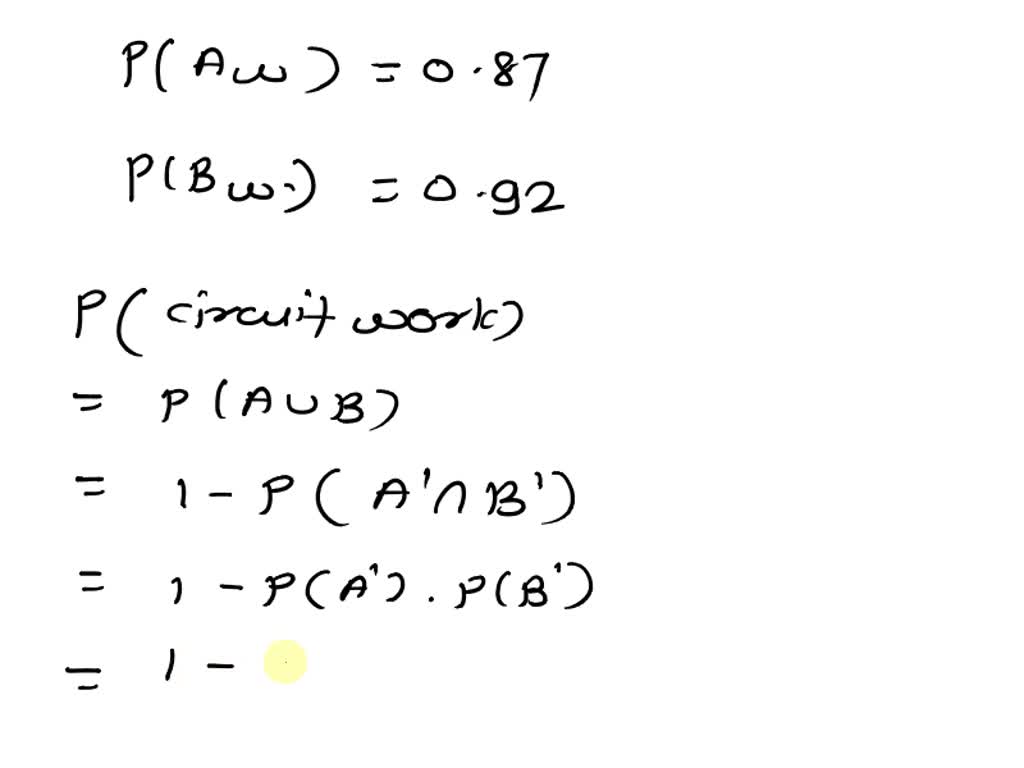 P(Aw) = 0.87
P(Bw.) = 0.92
P(circuit work)
= P(A∪B)
= 1 - P(A'∩B')
= 1 - P(A'). P(B')
= 1 -